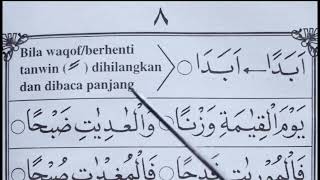 ٨
Bila waqof/berhenti
tanwin ( ـً ) dihilangkan
dan dibaca panjang
اَبَدًا ← اَبَدَا
يَوْمَ الْقِيٰمَةِ وَزْنًا ○ وَالْعٰدِيٰتِ ضَبْحًا ○
فَالْمُوْرِيٰتِ قَدْحًا ○ فَالْمُغِيْرٰتِ صُبْحًا ○